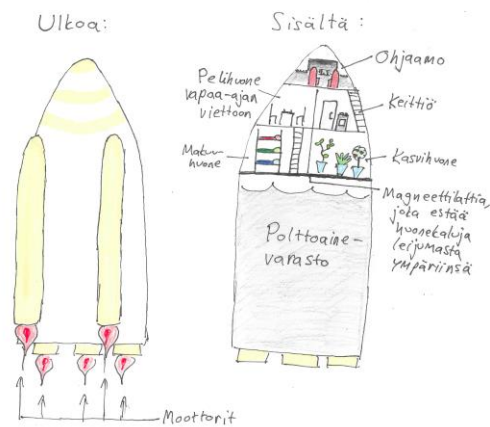 Ulkoa:
Sisältä:
Ohjaamo
Pelihuone
vapaa-ajan
viettoon
Keittiö
Makuu-
huone
Kasvihuone
Magneettilattia,
joka estää
huonekaluja
leijumasta
ympäriinsä
Polttoaine-
varasto
Moottorit